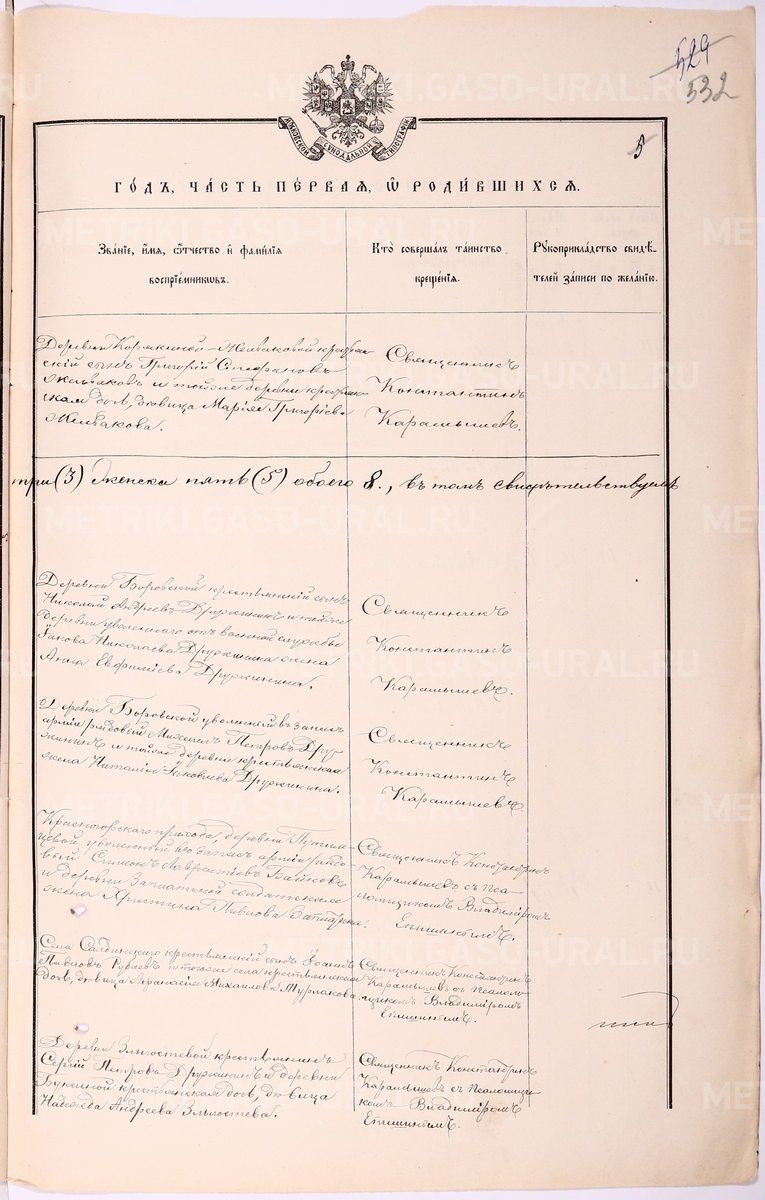 529
532
МОСКОВСКОЙ СѴНОДАЛЬНОЙ ТИПОГРАФІИ
5
ГО́ДЪ, ЧА́СТЬ ПЕ́РВАЯ, Ѡ҆ РОДИ́ВШИХСЯ.
Зва́нїе, и҆́мя, ѻ҆́тчество и҆ фами́лїя
воспрїе́мникѡвъ.
Кто̀ соверша́лъ та́инство
креще́нїя.
Рꙋкоприкла́дство свидѣ́-
телей за́писи по жела́нїю.
Деревни Корякиной-Желваковой крестьян
скій сынъ Григорій Стефановъ
Желваковъ и тойже деревни крестьян
ская дочь, девица Марія Григорiева
Желвакова.
Священникъ
Константинъ
Карамышевъ.
три (3) женска пять (5) обоего 8., въ томъ свидѣтельствуемъ
Деревни Боровской крестьянскій сынъ
Николай Андреевъ Дружининъ и тойже
деревни уволеннаго отъ военной службы
Іакова Николаева Дружинина жена
Анна Евфиміева Дружинина.
Священникъ
Константинъ
Карамышевъ.
Деревни Боровской уволенный въ запасъ
арміи рядовый Михаилъ Петровъ Дру-
жининъ и тойже деревни крестьянская
жена Наталія Іаковлева Дружинина.
Священникъ
Константинъ
Карамышевъ
Красногорскаго прихода, деревни
цовой уволенный въ запасъ арміи рядо-
вый Симеонъ Лаврентіевъ Байновъ
и деревни Запаткиной солдатская
жена Христина Павлова
Священникъ Константинъ
Карамышевъ съ Пса-
ломщикомъ Владиміромъ
Епишинымъ.
Села Салдинскаго крестьянскій сынъ Іоаннъ
Павловъ и тогоже села крестьянская
дочь, девица Афанасія Михаилова Турлакова.
Священникъ Константинъ
Карамышевъ съ Псалом-
щикомъ Владиміромъ
Епишинымъ.
Деревни Злыгостевой крестьянинъ
Сергій Петровъ Дружининъ и деревни
Букиной крестьянская дочь, девица
Надежда Андреева Злыгостева.
Священникъ Константинъ
Карамышевъ съ Псаломщи-
комъ Владиміромъ
Епишинымъ.
METRIKI.GASO-URAL.RU